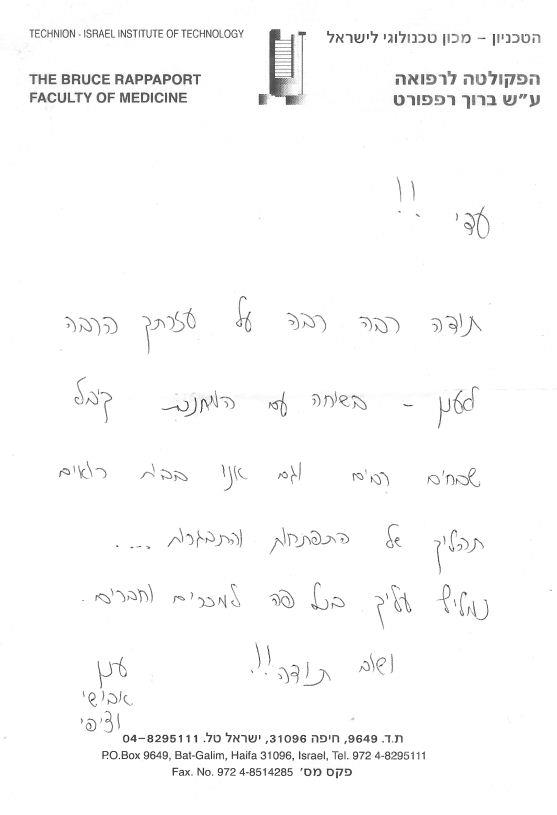 TECHNION - ISRAEL INSTITUTE OF TECHNOLOGY
הטכניון – מכון טכנולוגי לישראל
THE BRUCE RAPPAPORT
FACULTY OF MEDICINE
הפקולטה לרפואה
ע״ש ברוך רפפורט
עדי !!
תודה רבה רבה על עזרתך הרבה
בשיחה עם המחנכת קיבל
שבחים רבים וגם אנו בבית רואים
תהליך של התפתחות והתבגרות ....
נמליץ עליך בכל פה למכרים וחברים.
ושוב תודה!!
ענן
אבישי
וציפי
ת.ד. 9649, חיפה 31096, ישראל טל. 04–8295111
P.O.Box 9649, Bat-Galim, Haifa 31096, Israel, Tel. 972 4-8295111
Fax. No. 972 4-8514285 פקס מס׳